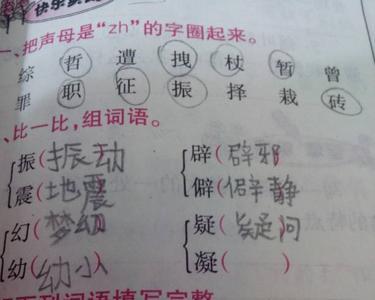 快乐
一、把声母是“zh”的字圈起来。
综 哲 遭 拽 杖 暂 曾
罪 职 征 振 择 栽 砖
、比一比，组词语。
振(振动) 辟(辟邪)
震(地震) 僻(僻静)
幻(梦幻) 疑(疑问)
幼(幼小) 凝( )
下列词语填写完整